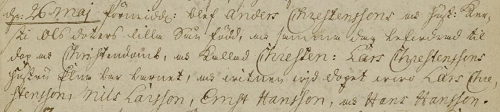 dn: 26 maij förmidde: blef Anders Chrestenssons och hust: Kier,
sti Ols doters lilla Sån född, och samma dag befordrad til
dop och Christendomb, och kallad Chresten: Lars Chrestenssons
hustru Elin bar barnet, och witnen wid dopet wiro Lars Chre,
stensson, Nils Larsson, Ernst Hansson, och Hans Hansson.